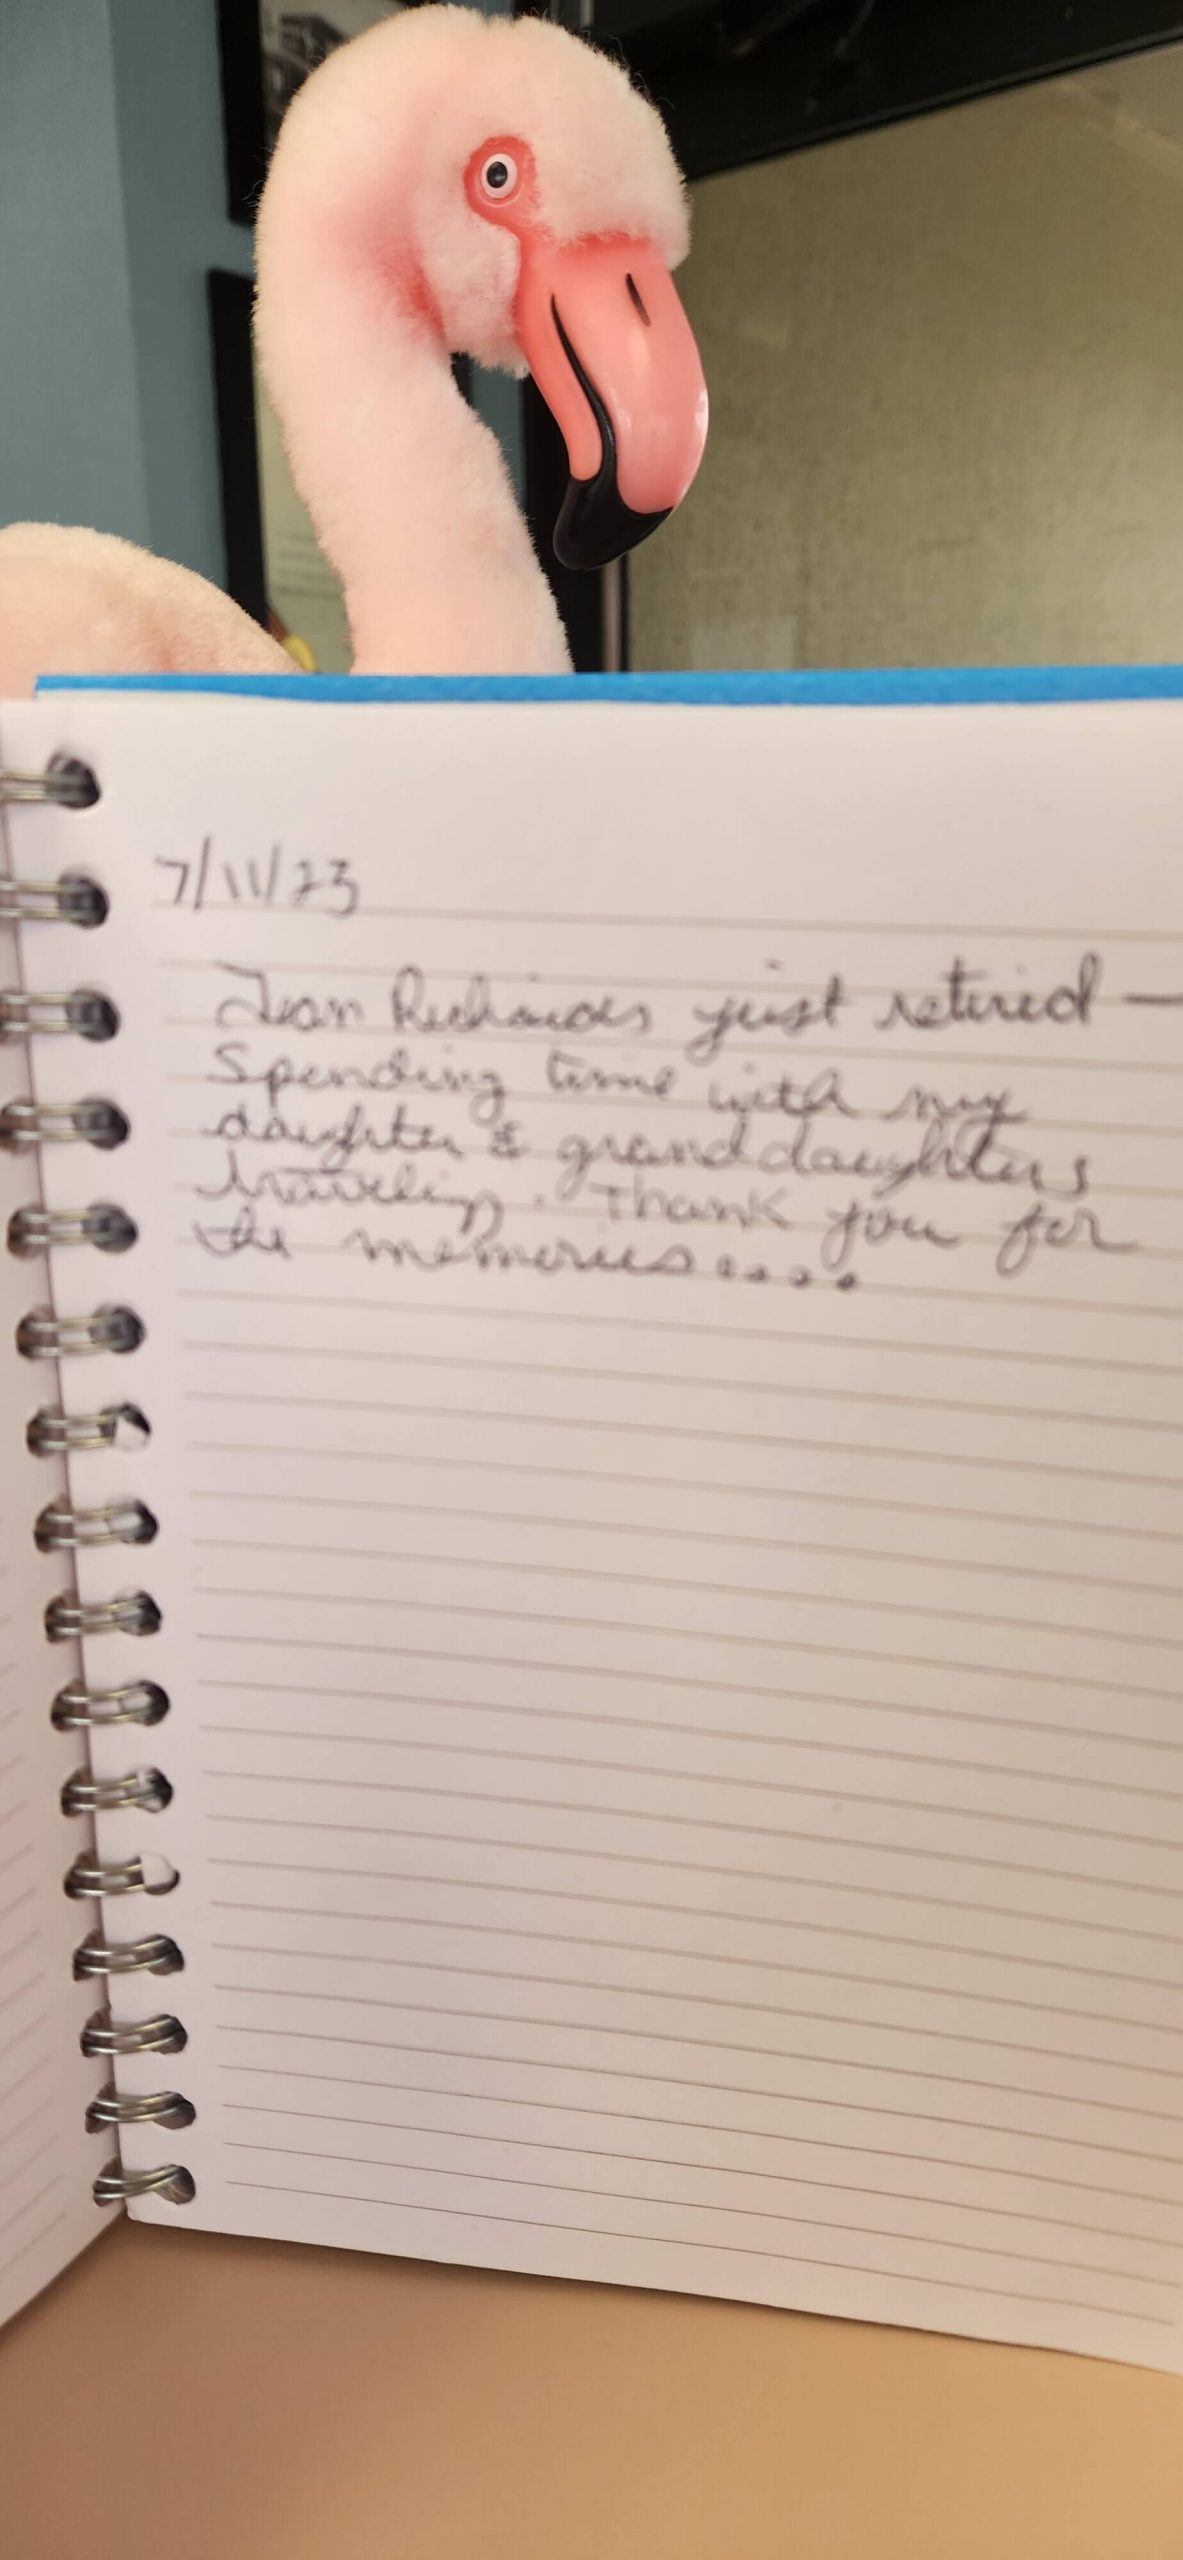 7/11/23
Jean Richards just retired —
Spending time with my
daughter & granddaughters
traveling. Thank you for
the memories....